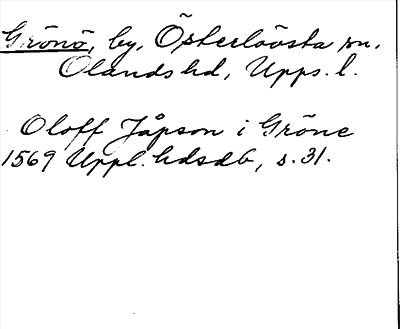 Grönö, by, Österlövsta sn.
Olands hd, Upps. l.
Oloff Jåpson i Gröne
1569 Uppl. hdsdb, s. 31.